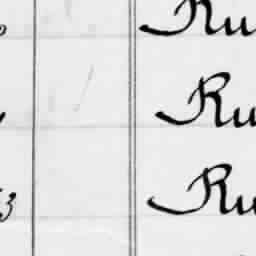 Ru
Ru
3 Ru